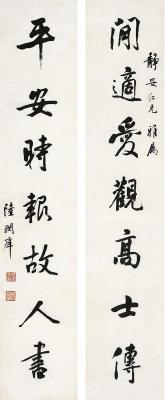 靜安仁兄雅屬
閒適愛觀高士傳
平安時報故人書
陸潤庠